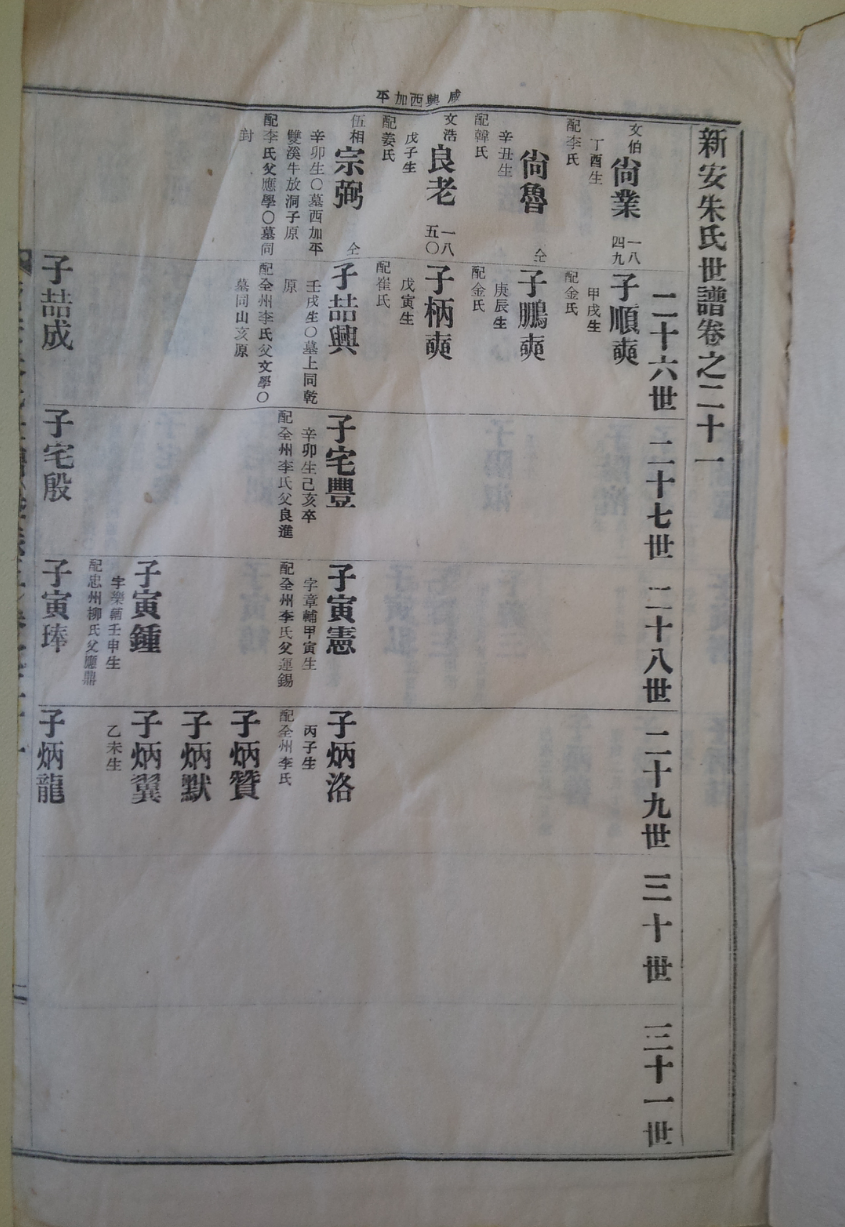 咸興西加平
新安朱氏世譜卷之二十一
二十六世
二十七世
二十八世
二十九世
三十世
三十一世
文伯
尙業
一八
四九
丁酉生
配李氏
子順奭
甲戌生
配金氏
尙魯
仝
辛丑生
配韓氏
子鵬奭
庚辰生
配金氏
文浩
良老
一八
五〇
戊子生
配姜氏
子柄奭
戊寅生
配崔氏
伍相
宗弼
仝
辛卯生〇墓西加平
雙溪牛放洞子原
配李氏父應學〇墓同
封
子喆興
壬戌生〇墓上同乾
原
配全州李氏父文學〇
墓同山亥原
子宅豐
辛卯生己亥卒
配全州李氏父良進
子寅憲
字章輔甲寅生
配全州李氏父運錫
子炳洛
丙子生
配全州李氏
子炳贊
子炳默
子寅鍾
字樂輔壬申生
配忠州柳氏父應鼎
子炳翼
乙未生
子喆成
子宅殷
子寅琫
子炳龍